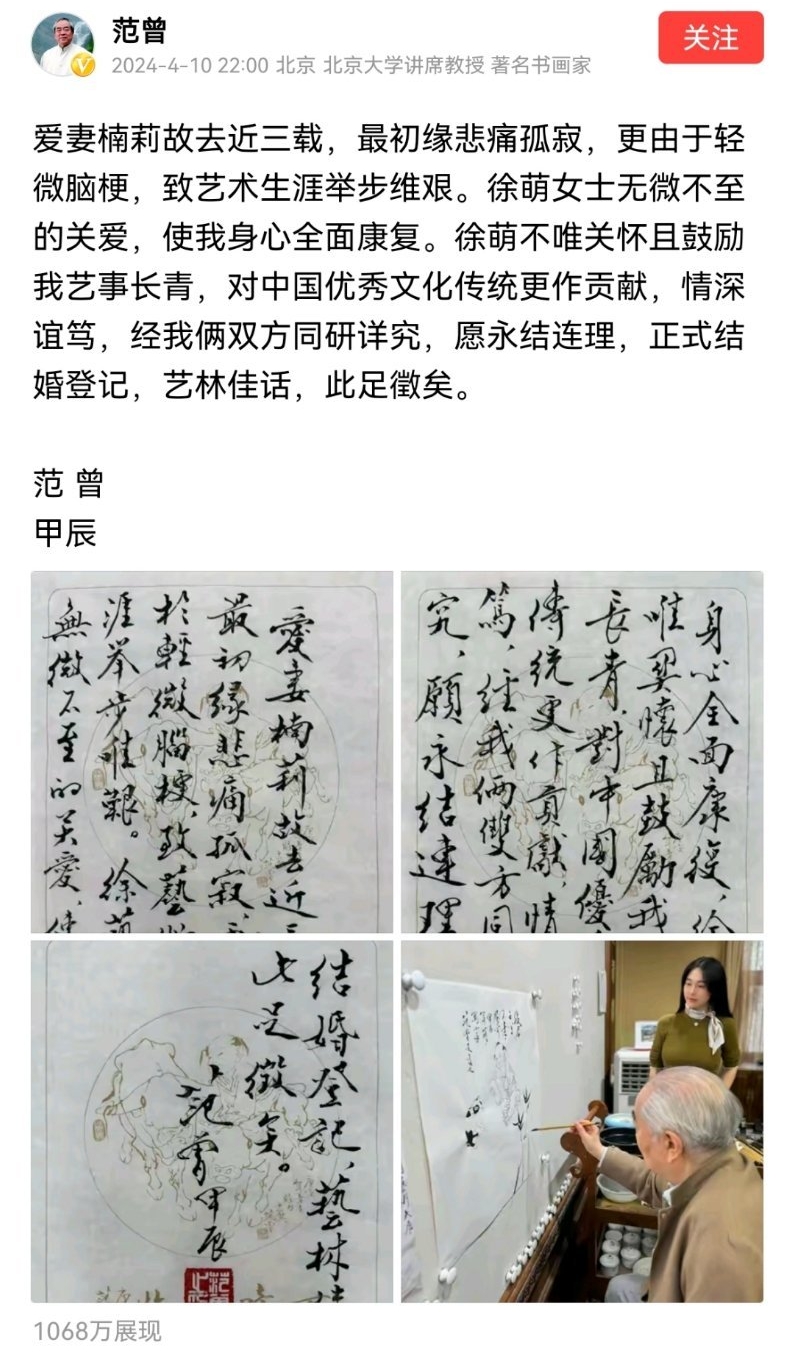 范曾
关注
2024-4-10 22:00 北京 北京大学讲席教授 著名书画家
爱妻楠莉故去近三载，最初缘悲痛孤寂，更由于轻
微脑梗，致艺术生涯举步维艰。徐萌女士无微不至
的关爱，使我身心全面康复。徐萌不唯关怀且鼓励
我艺事长青，对中国优秀文化传统更作贡献，情深
谊笃，经我俩双方同研详究，愿永结连理，正式结
婚登记，艺林佳话，此足徵矣。
范 曾
甲辰
愛妻楠莉故去近
最初缘悲痛孤寂，
於輕微腦梗，致藝
涯举步唯艱。徐萌
無微不至的关爱，使
身心全面康復，徐
唯関懷且鼓勵我
長青，對中國優
傳統更作貢獻，情
篤，經我俩雙方同
究，願永结連理
结婚登記，藝林
此足徵矣。
范曾甲辰
1068万展现